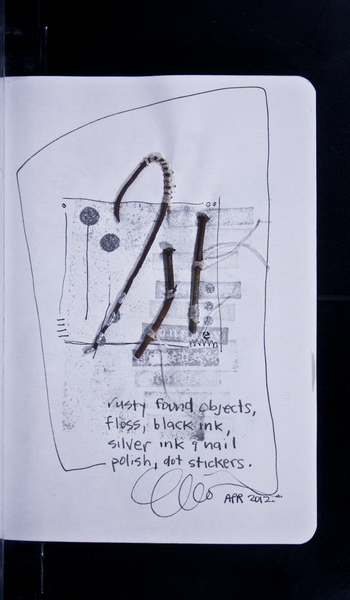 rusty found objects,
floss, black ink,
silver ink & nail
polish, dot stickers.
APR 2012